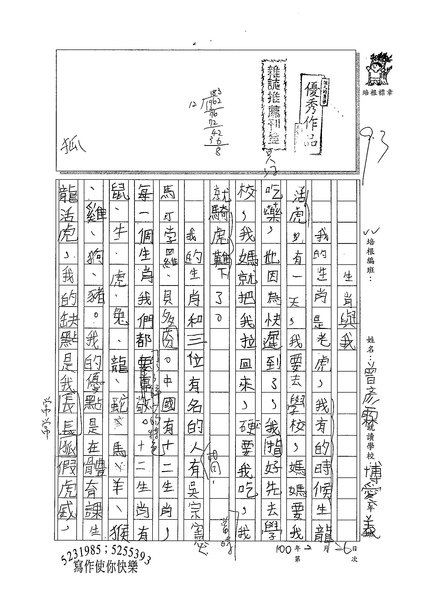 培根標章
優秀作品
雜誌推薦刊登
93
83
12/1962
96
72
62
36
8
狐
培根編班：
姓名：曾彥
讀學校
博愛 義
100年2月26日
第 次
生肖與我
我的生肖是老虎，我有的時候生龍
活虎，有一天，我要去學校，媽媽要我
吃藥，也因為快遲到了，我指好先去學
校，我媽就把我拉回來，硬要我吃，我
就騎虎難下了。
我的生肖和三位有名的人有吳宗憲、
馬可孛羅、貝多芬。中國有十二生肖，
每一個生肖我們都要尊敬，十二生肖有
鼠、牛、虎、兔、龍、蛇、馬、羊、猴
、雞、狗、豬。我的優點是在體育課生
龍活虎，我的缺點是我長長狐假虎威，
常常
5231985；5255393
寫作使你快樂